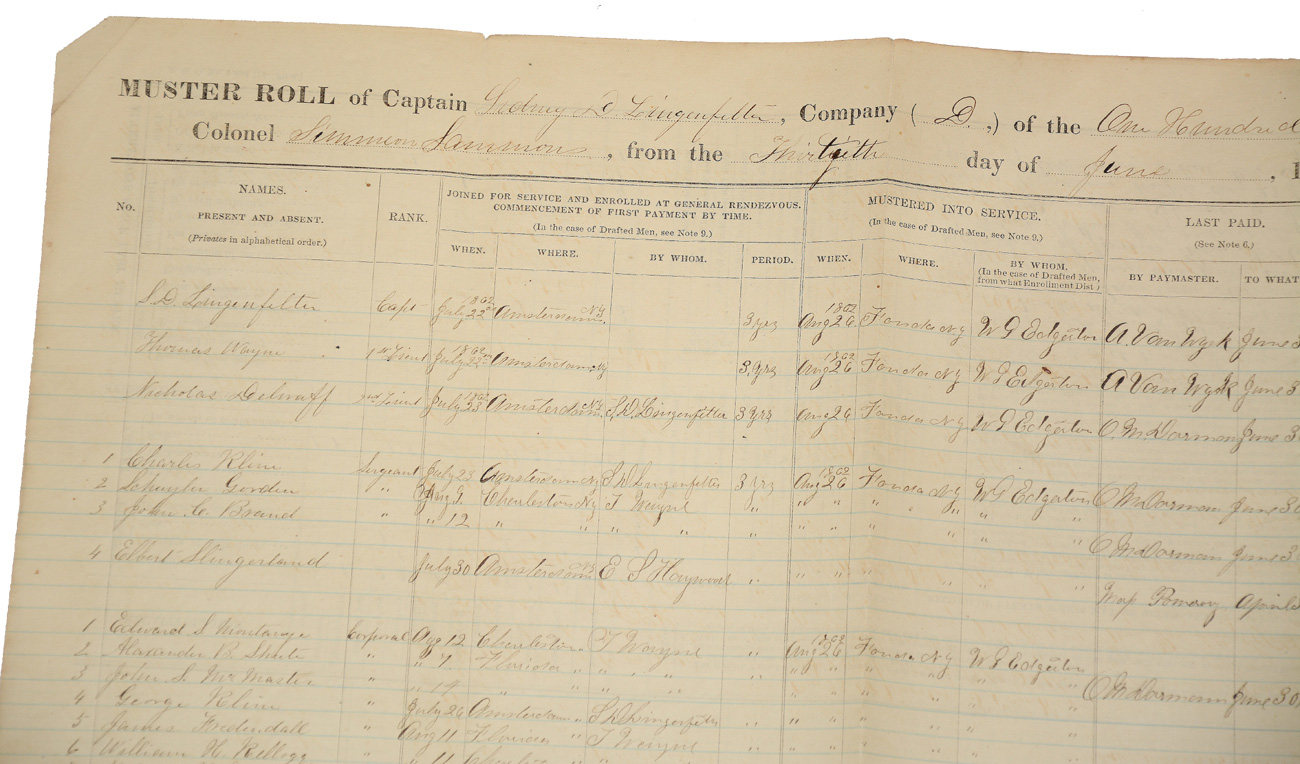 MUSTER ROLL of Captain Sidney D Lingenfelter, Company (D.,) of the One Hundred
Colonel Simmeon Sammons, from the Thirtyeth day of June, 1
No. NAMES. PRESENT AND ABSENT. (Privates in alphabetical order.) RANK. JOINED FOR SERVICE AND ENROLLED AT GENERAL RENDEZVOUS. COMMENCEMENT OF FIRST PAYMENT BY TIME. (In the case of Drafted Men, see Note 9.) MUSTERED INTO SERVICE. (In the case of Drafted Men, see Note 9.) LAST PAID. (See Note 6.)
WHEN. WHERE. BY WHOM. PERIOD. WHEN. WHERE. BY WHOM. (In the case of Drafted Men, from what Enrollment Dist.) BY PAYMASTER. TO WHAT
S. D. Lingenfelter Capt 1862 July 22 Amsterdam NY 3 yrs 1862 Aug 26 Fonda NY W G Edgerton A. Van Wyck June 3
Thomas Wayne 1st Lieut 1862 July 22 Amsterdam NY 3 yrs 1862 Aug 26 Fonda NY W G Edgerton A Van Wyck June 3
Nicholas 2nd Lieut 1862 July 23 Amsterdam NY S. D. Lingenfelter 3 yrs Aug 26 Fonda NY W G Edgerton O. McDorman June 30
1 Charles Kline Sergeant July 23 Amsterdam NY S D Lingenfelter 3 yrs 1862 Aug 26 Fonda NY W G Edgerton O McDorman June 30
2 Schuyler Gordon " Aug 1 Charleston NY T Wayne " " " " " "
3 John C Brand " " 12 " " " " " " " " " O McDorman June 30
4 Elbert Slingerland July 30 Amsterdam NY E S Haywood " " " " " " Maj Pomeroy April
1 Edward S Montange Corporal Aug 12 Charleston " T Wayne " 1862 Aug 26 Fonda NY W G Edgerton
2 Alexander B. Shute " " 7 Florida " " " " " " " " " O McDormann June 30
3 John S. McMaster " " 14 " " " " " " " " " "
4 George Kline " July 26 Amsterdam " S D Lingenfelter " " " " " "
5 James Fredendall " Aug 11 Florida " T Wayne " " " " " "
6 William H. Kellogg " " 11